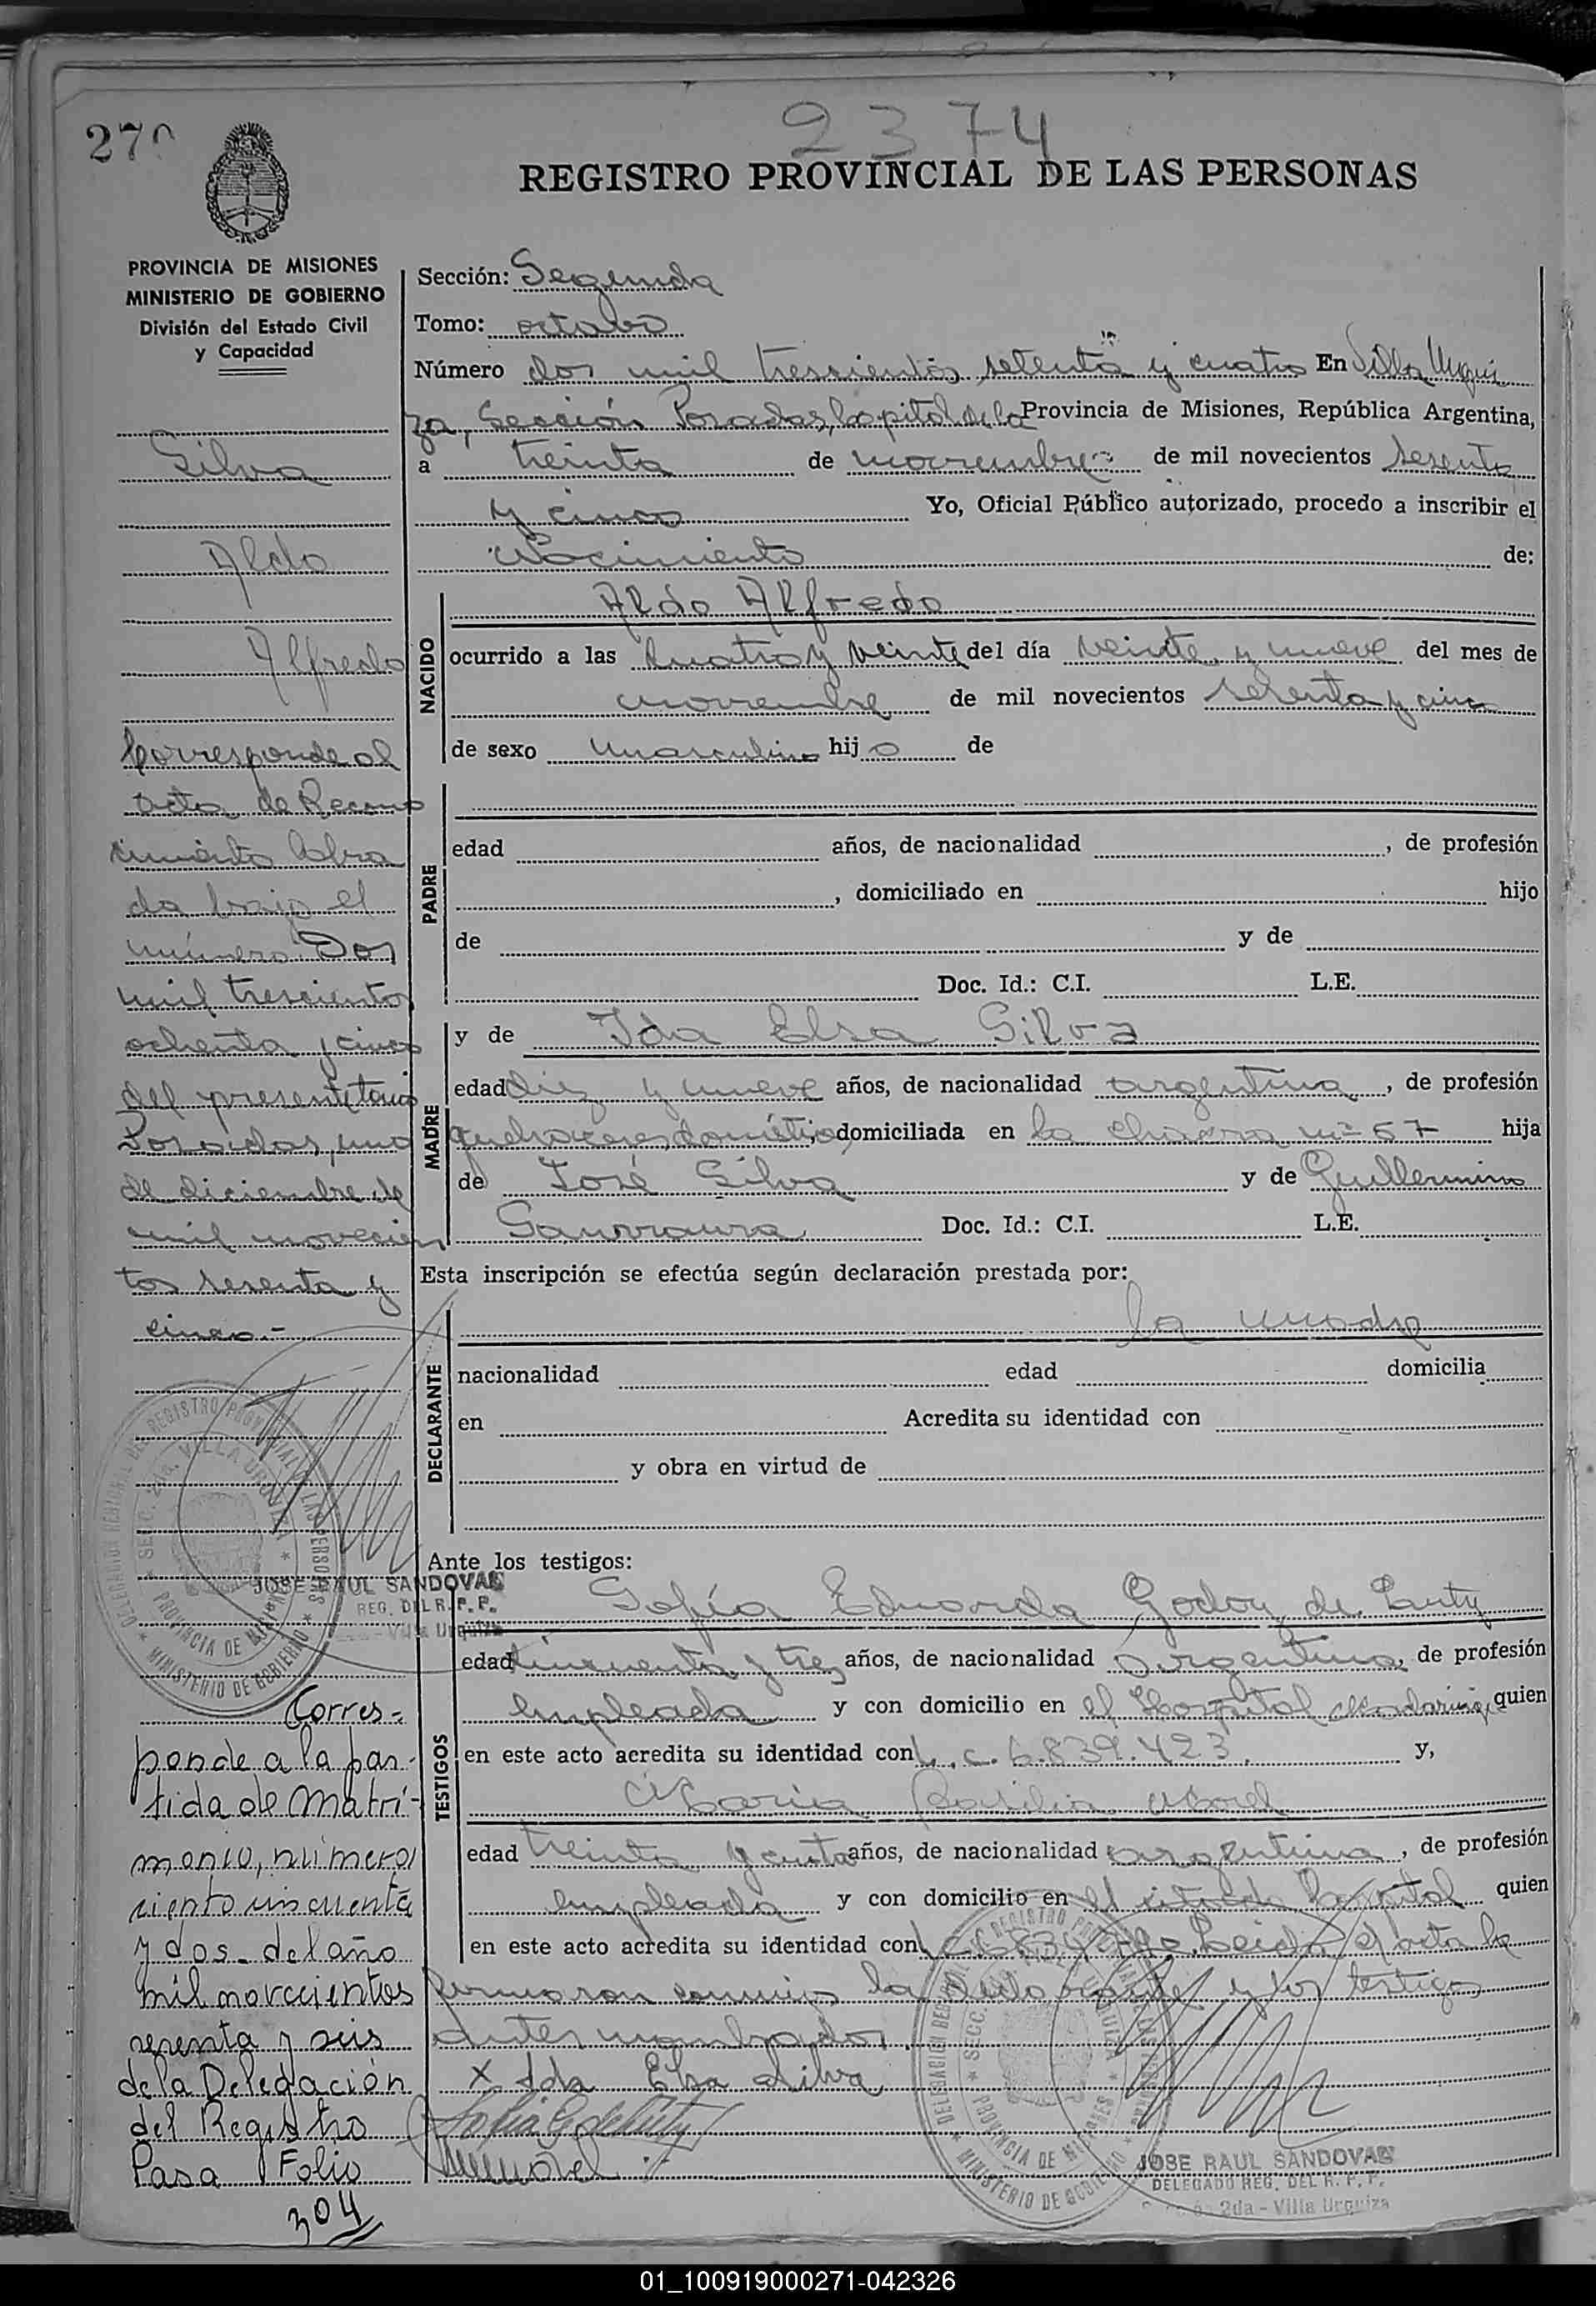 2374
270
REGISTRO PROVINCIAL DE LAS PERSONAS
PROVINCIA DE MISIONES
MINISTERIO DE GOBIERNO
División del Estado Civil
y Capacidad
Silva
Aldo
Alfredo
Corresponde al
acta de Reconо
cimiento labra
da bajo el
número Dos
mil trescientos
ochenta y cinco
del presente tomo
Posadas, uno
de diciembre de
mil novecien
tos sesenta y
cinco.-
JOSE RAUL SANDOVAL
REG. DEL R. P. P.
Villa Urquiza
Corres-
ponde a la par-
tida de matri-
monio, número
ciento cincuenta
y dos del año
mil novecientos
sesenta y seis
de la Delegación
del Registro
Pasa Folio
304
Sección: Segunda
Tomo: octavo
Número dos mil trescientos setenta y cuatro En Villa Urqui
za, Sección Posadas, Capital de la Provincia de Misiones, República Argentina,
a treinta de noviembre de mil novecientos sesenta
y cinco Yo, Oficial Público autorizado, procedo a inscribir el
Nacimiento de:
NACIDO
Aldo Alfredo
ocurrido a las cuatro y veinte del día veinte y nueve del mes de
noviembre de mil novecientos sesenta y cinco
de sexo masculino hijo de
PADRE
edad años, de nacionalidad , de profesión
, domiciliado en hijo
de y de
Doc. Id.: C.I. L.E.
MADRE
y de Ida Elsa Silva
edad diez y nueve años, de nacionalidad argentina, de profesión
quehaceres domésticos domiciliada en la chacra nº 57 hija
de José Silva y de Guillermina
Doc. Id.: C.I. L.E.
Esta inscripción se efectúa según declaración prestada por:
DECLARANTE
la madre
nacionalidad edad domicilia
en Acredita su identidad con
y obra en virtud de
Ante los testigos:
TESTIGOS
Sofía Eduarda Godoy de
edad cincuenta y tres años, de nacionalidad argentina, de profesión
empleada y con domicilio en el Hospital Madariaga, quien
en este acto acredita su identidad con L.C. 6.839.423. y,
María Basilia Morel
edad treinta y años, de nacionalidad argentina, de profesión
empleada y con domicilio en el citado hospital quien
en este acto acredita su identidad con Leida el acta la
firmaron conmigo la declarante y los testigos
antes nombrados.
x Ida Elsa Silva
Morel
DELEGACION REGIONAL DEL REGISTRO PROVINCIAL DE LAS PERSONAS
SECC. 2da. VILLA URQUIZA
PROVINCIA DE MISIONES
MINISTERIO DE GOBIERNO
JOSE RAUL SANDOVAL
DELEGADO REG. DEL R. P. P.
2da - Villa Urquiza
01_100919000271-042326